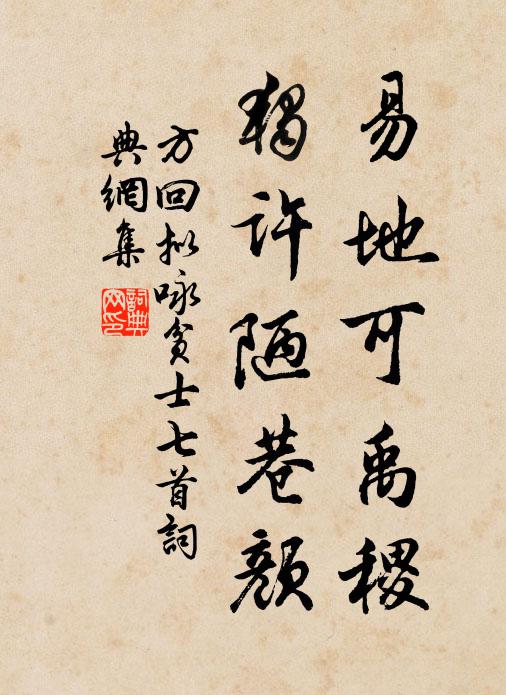 易地可禹稷
獨許陋巷顏
方回拟咏贫士七首詞
典網集
詞典
网印